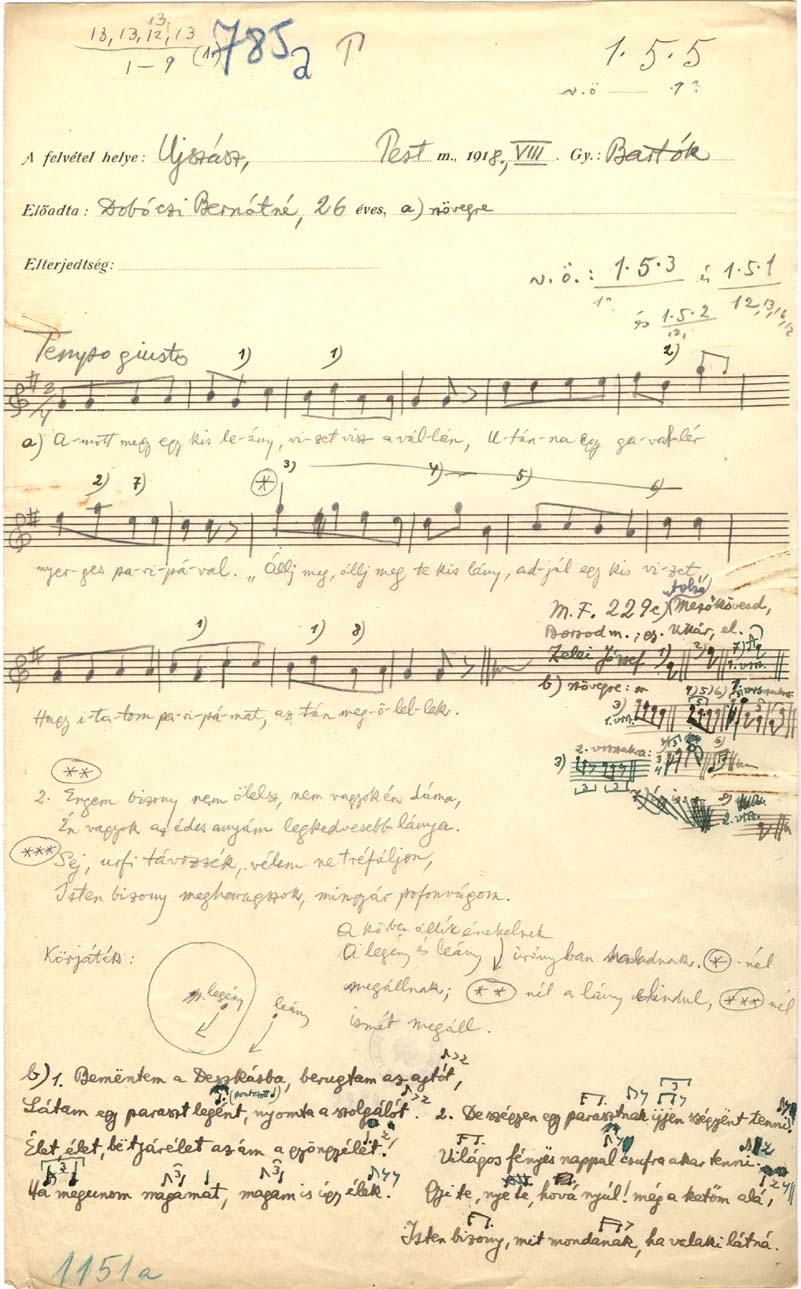 13, 13, 13, 12, 13
1 — 9
(1)
785a
1·5·5
A felvétel helye: Ujszász, Pest m., 1918, VIII. Gy.: Bartók
Előadta: Dobóczi Bernátné, 26 éves, a) szövegre
Elterjedtség:
v. ö.: 1·5·3 és 1·5·1
és 1·5·2
Tempo giusto
1) 1) 2)
a) A-mott megy egy kis le-ány, vi-zet visz a vál-lán, U-tán-na egy ga-val-lér
2) 7) * 3) 4) 5) 6)
nyer-ges pa-ri-pá-val. „Állj meg, állj meg te kis lány, ad-jál egy kis vi-zet,
M. F. 229c) Mezőkövesd,
Borsod m.;
Zelei József 1) 2) 7)
1) 1) 8)
b) szövegre:
Hagy i-ta-tom pa-ri-pá-mat, az-tán meg-ö-lel-lek.
3) 1. vrs. 4) 5) 6)
2. versszaka:
**
2. Engem bizony nem ölelsz, nem vagyok én dáma,
Én vagyok az édes anyám legkedvesebb lánya.
*** Sej, urfi távozzék, vélem ne tréfáljon,
Isten bizony megharagszok, mingyár pofonvágom.
Körjáték:
legény
leány
a körben állók énekelnek
A legény és leány irányban haladnak. * -nál
megállnak; ** nél a lány elindul, *** nél
ismét megáll.
b) 1. Bementem a Deszkásba, berugtam az ajtót,
Látam egy paraszt legént, nyomta a szolgálót.
Élet, élet, betyárélet az ám a gyöngyélet!
Ha megunom magamat, magam is úgy élek.
2. De szégyen egy parasztnak ijjen szégyent tenni
Világos fényes nappal csufra akar tenni.
Ejj te, nye te, hová nyúl! még a kötőm alá,
Isten bizony, mit mondanak, ha valaki látná.
1151a